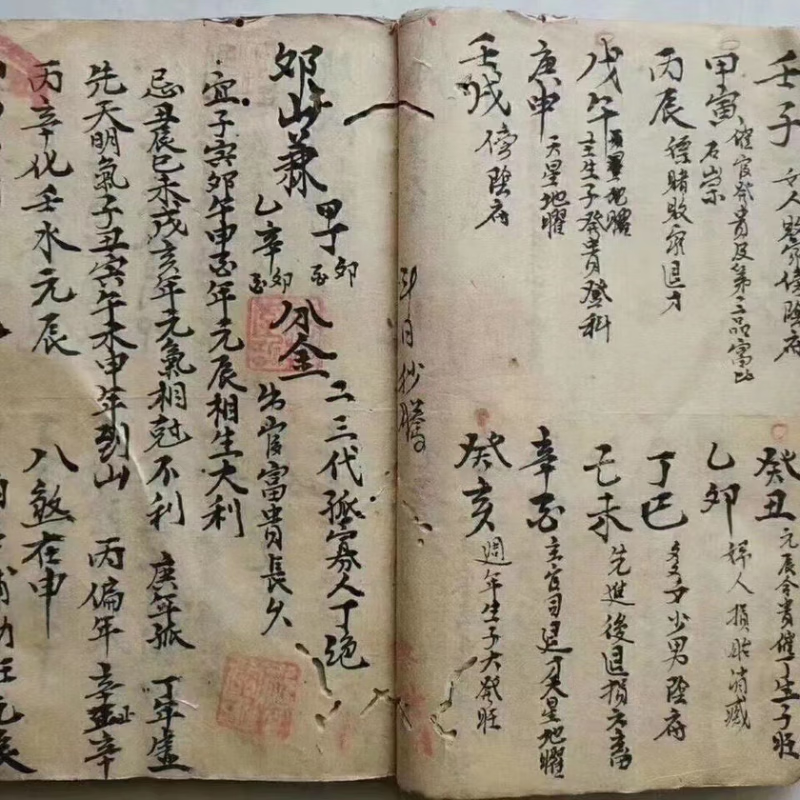 壬子 女人敗家傍陰府
甲寅 催官發貴及第三品富比石崇
丙辰 漂賭敗家退才
戊午 天星地曜主生子發貴登科
庚申 天星地曜
壬戌 傍陰府
癸丑 元辰合貴催丁生子旺
乙卯 婦人損胎消滅
丁巳 多女少男陰府
己未 先進後退損六畜
辛酉 主官司退才天星地曜
癸亥 週年生子大發旺
日抄謄
卯山兼 甲子卯酉 分金 二三代孤寡人丁絕
乙辛卯酉 出官富貴長久
宜子寅卯午申酉年元辰相生大利
忌丑辰巳未戌亥年元氣相尅不利 庚年孤 丁年虛
先天明氣子丑寅午未申年到山 丙偏年 辛
丙辛化壬水元辰 八煞在申
助旺元辰